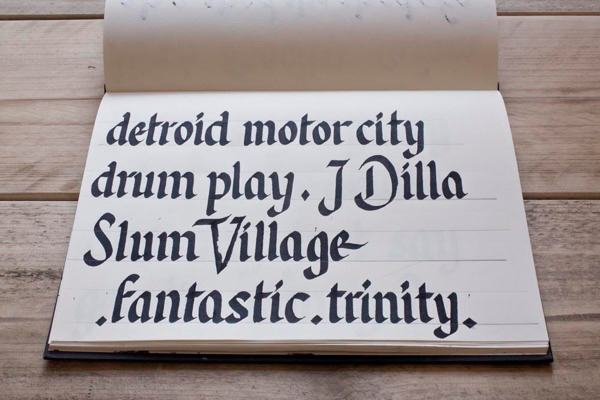 detroid motor city
drum play. J Dilla
Slum Village
.fantastic.trinity.